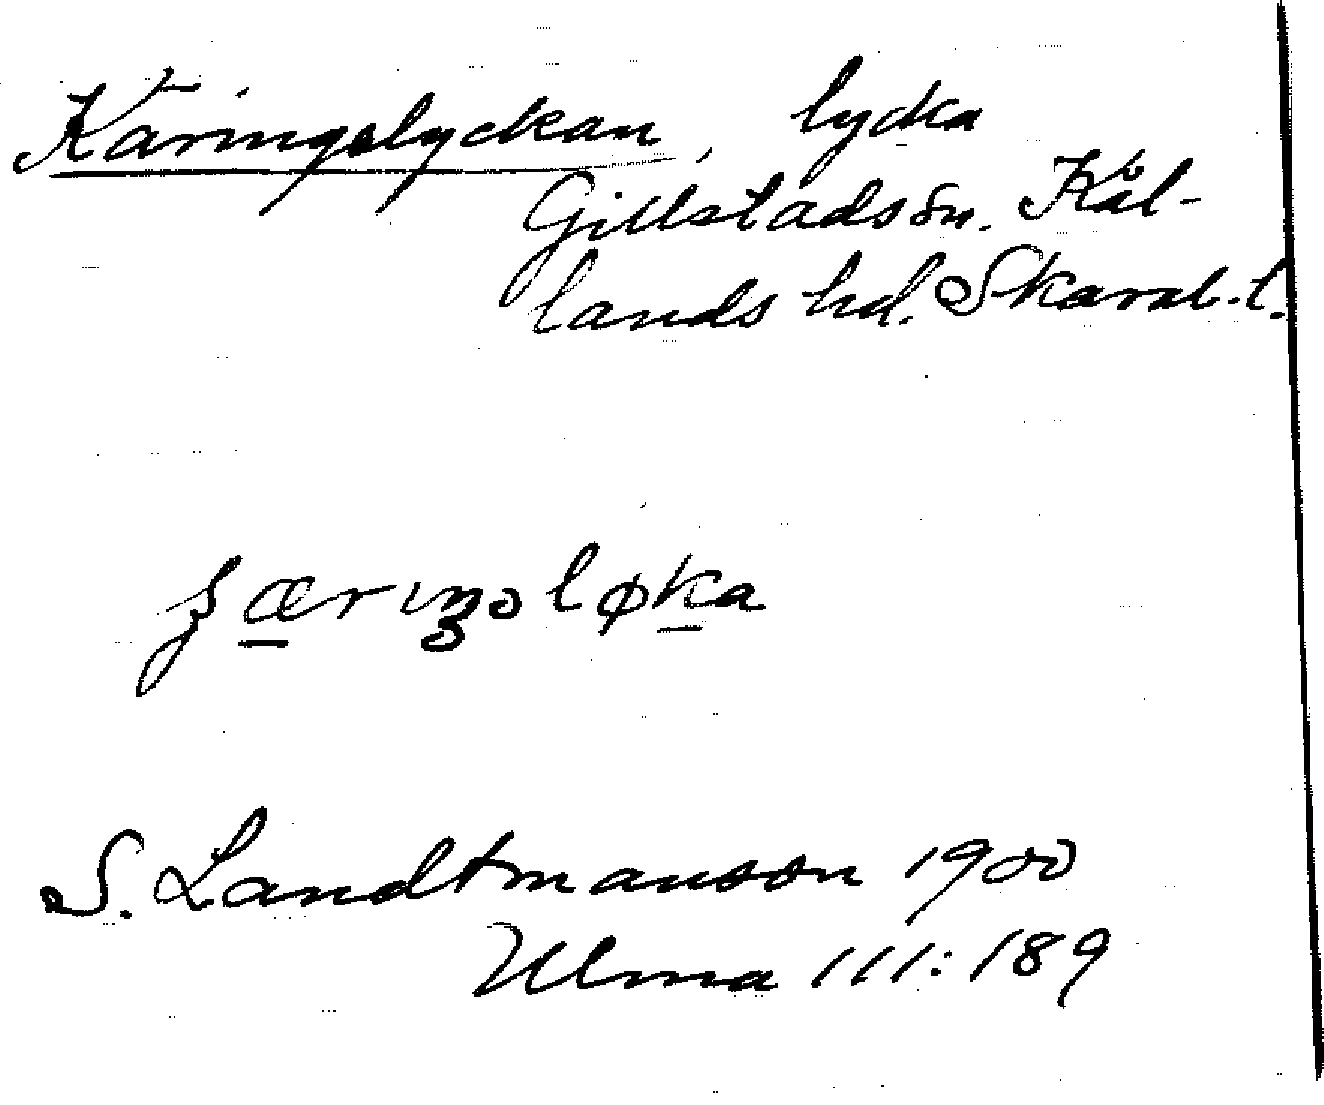 Käringslyckan, lycka
Gillstads sn. Kål-
lands hd. Skarab. l.
S. Landtmanson 1900
Ulma 111:189